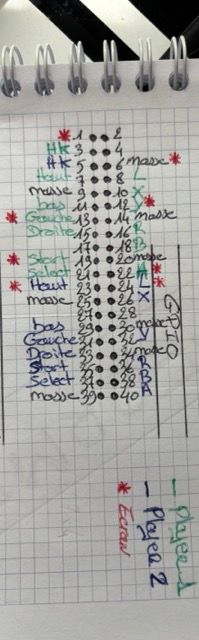 * 1 2
HK 3 4
HK 5 6 masse *
Haut 7 8 L
masse 9 10 X
bas 11 12 Y *
* Gauche 13 14 masse
Droite 15 16 R
17 18 B
* Start 19 20 masse
Select 21 22 *
* Haut 23 24 L *
masse 25 26 X
27 28
bas 29 30 masse
Gauche 31 32 Y
Droite 33 34 masse
Start 35 36 R
Select 37 38
masse 39 40
GPIO
— player 1
— Player 2
* Ecran